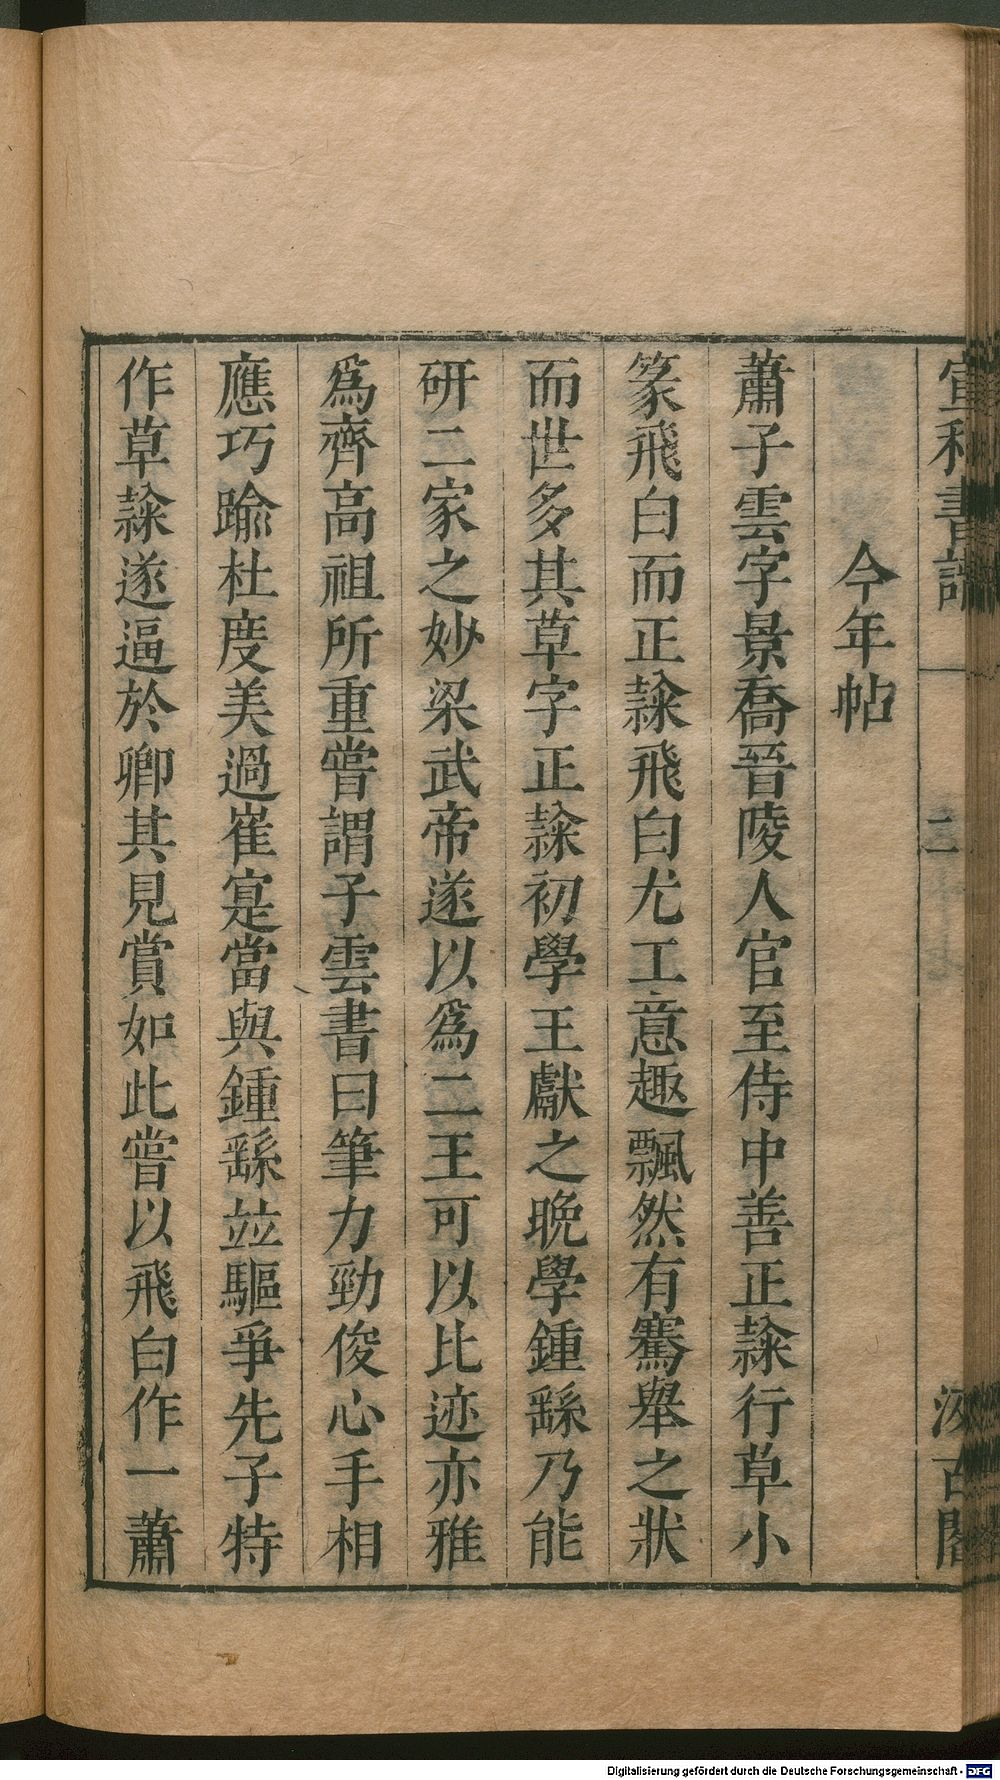 宣和書譜 二 汲古閣
今年帖
蕭子雲字景喬晉陵人官至侍中善正隷行草小
篆飛白而正隷飛白尤工意趣飄然有騫舉之狀
而世多其草字正隷初學王獻之晚學鍾繇乃能
研二家之妙梁武帝遂以爲二王可以比迹亦雅
爲齊高祖所重嘗謂子雲書曰筆力勁俊心手相
應巧踰杜度美過崔寔當與鍾繇並驅爭先子特
作草隷遂逼於卿其見賞如此嘗以飛白作一蕭
Digitalisierung gefördert durch die Deutsche Forschungsgemeinschaft - DFG